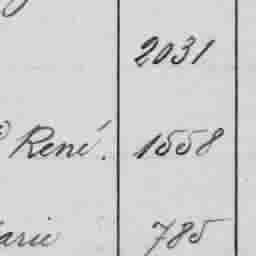 2031
René. 1558
arie 785